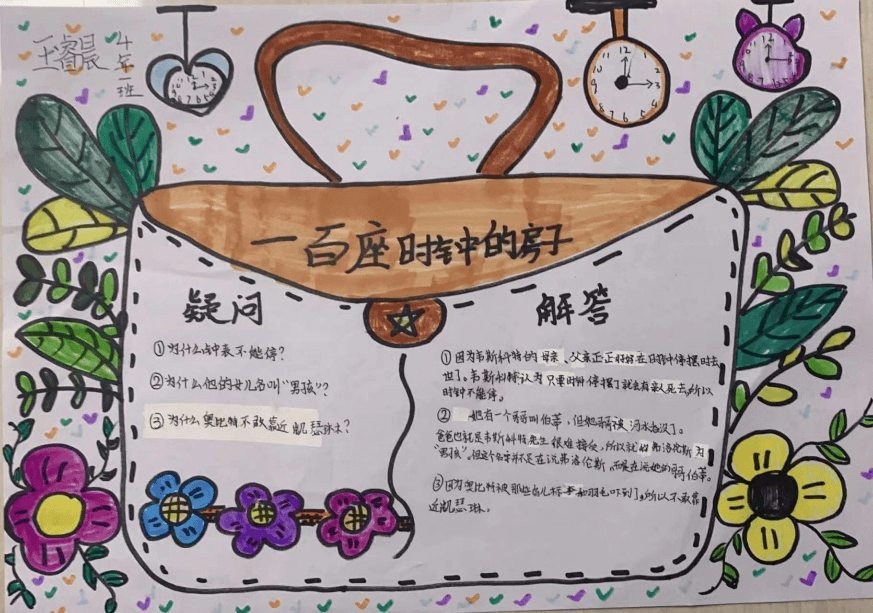 王睿晨
4年一班
一百座时钟的房子
疑问
①为什么钟表不能停？
②为什么他的女儿名叫“男孩”？
③为什么奥比特不敢靠近凯瑟琳？
解答
①因为韦斯科特的母亲、父亲正正好好在时钟停摆时去
世了，韦斯科特认为只要时钟停摆了就会有亲人死去，所以
时钟不能停。
②她有一个哥哥叫伯蒂，但她哥哥误 河水
爸爸也就是韦斯科特先生很难接受，所以就 弗洛伦斯为
“男孩”。但这个名字并不是在说弗洛伦斯，而是在说她的哥哥伯蒂。
③因为奥比特被那些鸟儿标本和羽毛吓到了，所以不敢靠
近凯瑟琳。
12 1 2 3 4 5 6 7 8 9 10 11